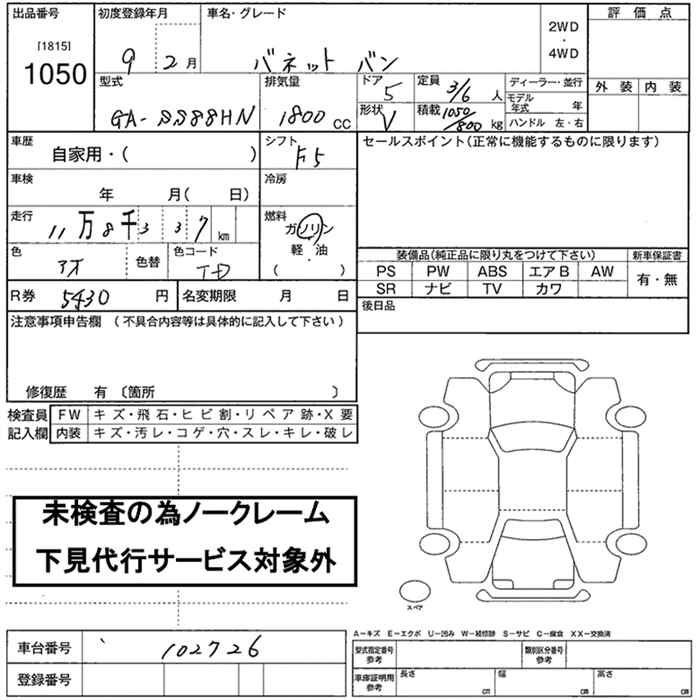 出品番号
［1815］
1050
初度登録年月
9 2 月
車名・グレード
バネット バン
2WD
・
4WD
評価点
外装 内装
型式
GA-SS88HN
排気量
1800 CC
ドア 5
形状 V
定員 3/6 人
積載 1050/800 kg
ディーラー・並行
モデル年式 年
ハンドル 左・右
車歴
自家用・( )
シフト
F5
セールスポイント(正常に機能するものに限ります)
車検
年 月( 日)
冷房
走行
11万8千337 km
燃料
ガソリン
軽・油
( )
色
色替
色コード
装備品(純正品に限り丸をつけて下さい)
新車保証書
PS PW ABS エアB AW
SR ナビ TV カワ
有・無
R券 5430 円
名変期限 月 日
後日品
注意事項申告欄 (不具合内容等は具体的に記入して下さい)
修復歴 有〔箇所 〕
検査員記入欄
FW キズ・飛石・ヒビ割・リペア跡・X要
内装 キズ・汚レ・コゲ・穴・スレ・キレ・破レ
未検査の為ノークレーム
下見代行サービス対象外
スペア
A－キズ E－エクボ U－凹み W－経修跡 S－サビ C－腐食 XX－交換済
車台番号 102726
登録番号
型式指定番号 参考
類別区分番号 参考
車庫証明用 参考
長さ cm
幅 cm
高さ cm